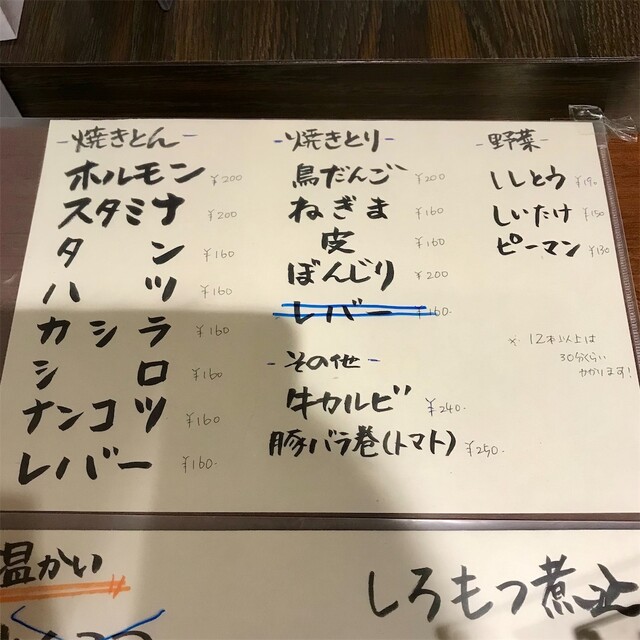 -焼きとん-
ホルモン ¥200
スタミナ ¥200
タン ¥160
ハツ ¥160
カシラ ¥160
シロ ¥160
ナンコツ ¥160
レバー ¥160.
-焼きとり-
鳥だんご ¥200
ねぎま ¥160
皮 ¥160
ぼんじり ¥200
レバー ¥160.
-その他-
牛カルビ ¥240.
豚バラ巻(トマト) ¥250.
-野菜-
ししとう ¥190
しいたけ ¥150
ピーマン ¥130
※ 12本以上は
30分くらい
かかります!
温かい
しろもつ煮込